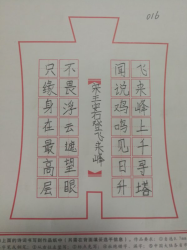 016
飞来峰上千寻塔
闻说鸡鸣见日升
【宋王安石登飞来峰】
不畏浮云遮望眼
只缘身在最高层